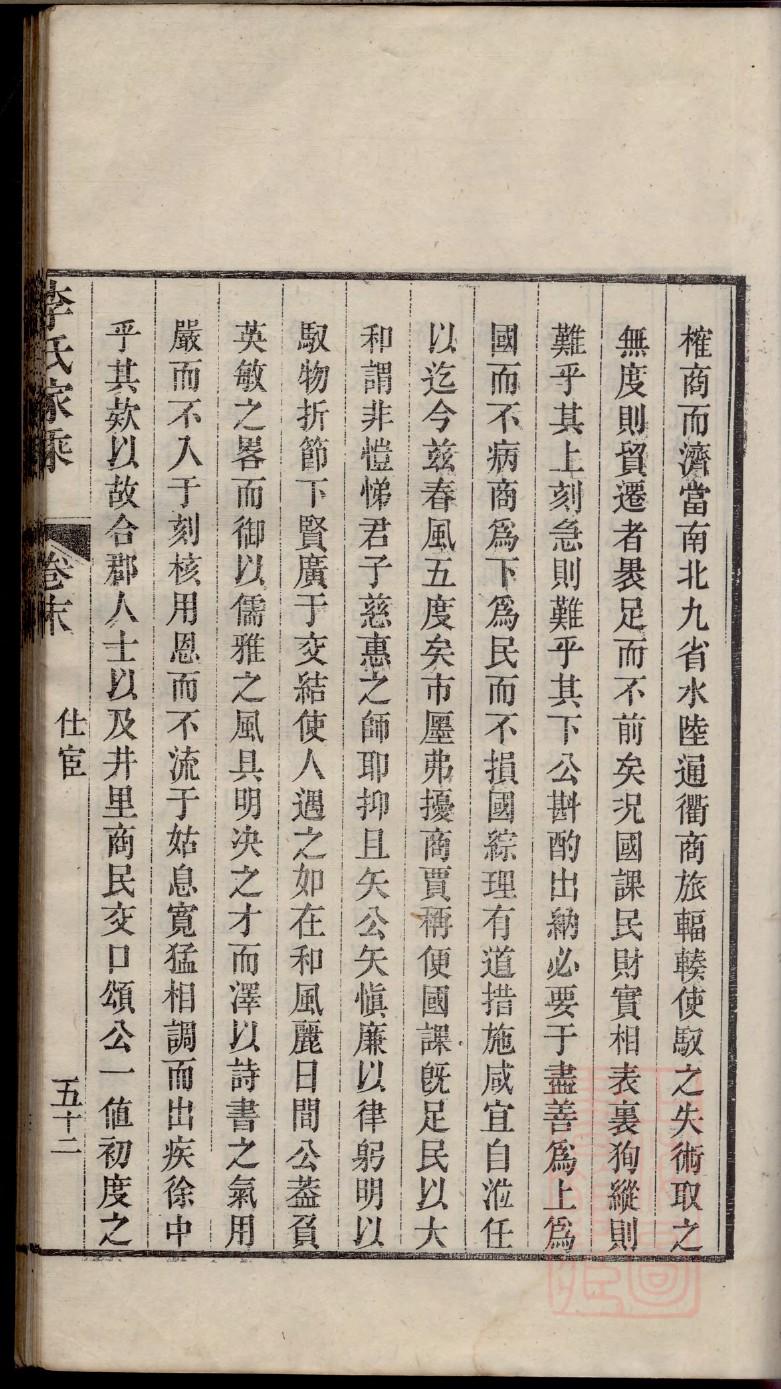 榷商而濟當南北九省水陸通衢商旅輻輳使馭之失術取之
無度則貿遷者畏足而不前矣況國課民財實相表裏狥縱則
難乎其上刻急則難乎其下公斟酌出納必要于盡善爲上爲
國而不病商爲下爲民而不損國綜理有道措施咸宜自涖任
以迄今兹春風五度矣市廛弗擾商賈稱便國課旣足民以大
和謂非愷悌君子慈惠之師耶抑且矢公矢愼廉以律躬明以
馭物折節下賢廣于交結使人遇之如在和風麗日間公葢負
英敏之畧而御以儒雅之風具明决之才而澤以詩書之氣用
嚴而不入于刻核用恩而不流于姑息寛猛相調而出疾徐中
乎其欵以故合郡人士以及井里商民交口頌公一值初度之
李氏家乘
卷末
仕宦
五十二